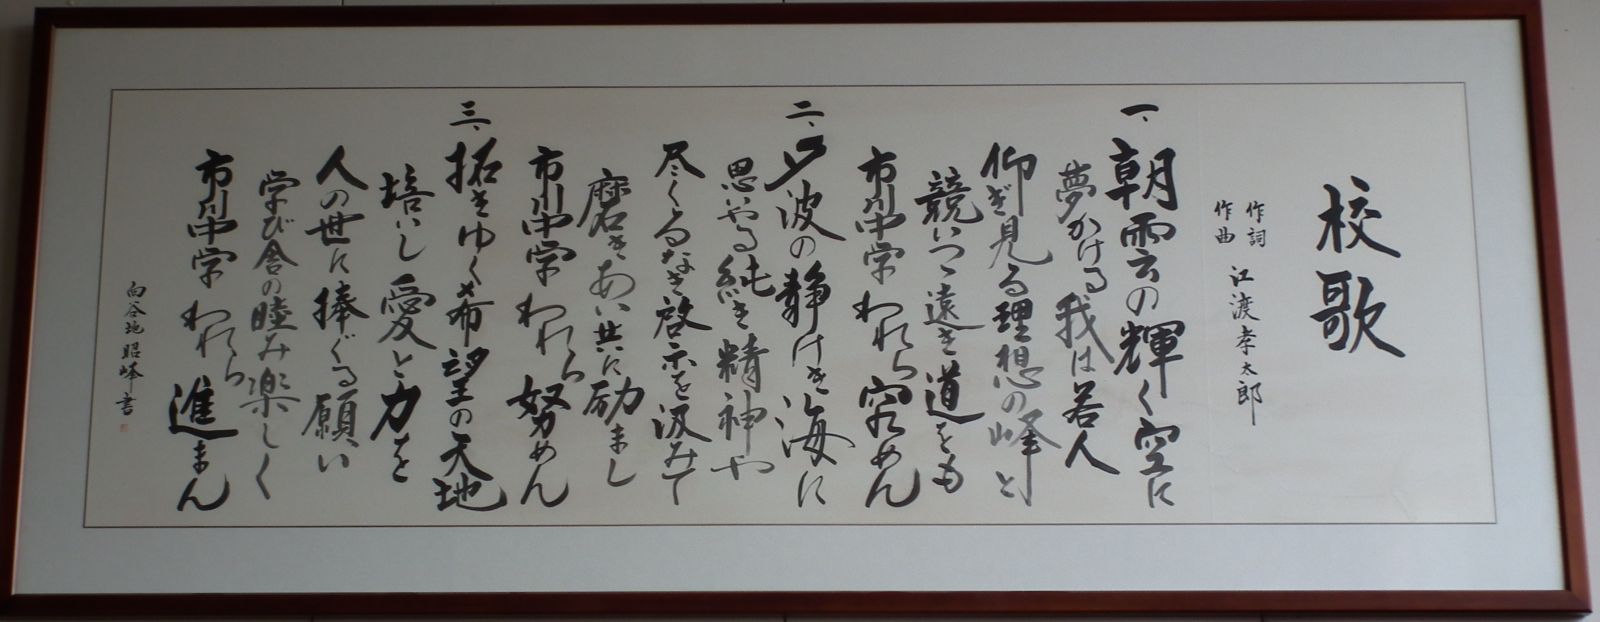 校歌
作詞
作曲 江渡孝太郎
一、朝雲の輝く空に
夢かける我は若人
仰ぎ見る理想の峰と
競いつゝ遠き道をも
市川中学われら究めん
二、夕波の静けき海に
思いやる純き精神や
尽くるなき啓示を汲みて
磨きあい共に励まし
市川中学われら努めん
三、拓きゆく希望の天地
培いし愛と力を
人の世に捧ぐる願い
学び舎の睦み楽しく
市川中学われら進まん
向谷地昭峰書